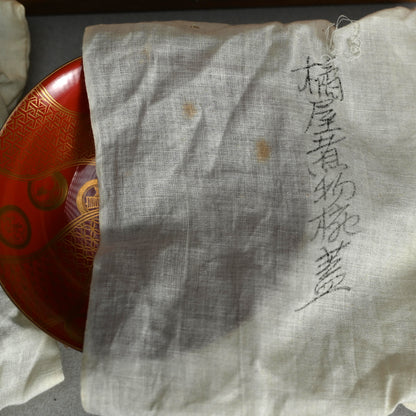 橘屋煮物椀蓋